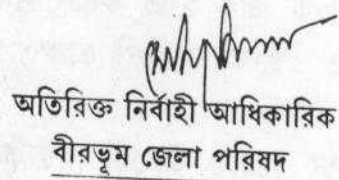 অতিরিক্ত নির্বাহী আধিকারিক
বীরভূম জেলা পরিষদ